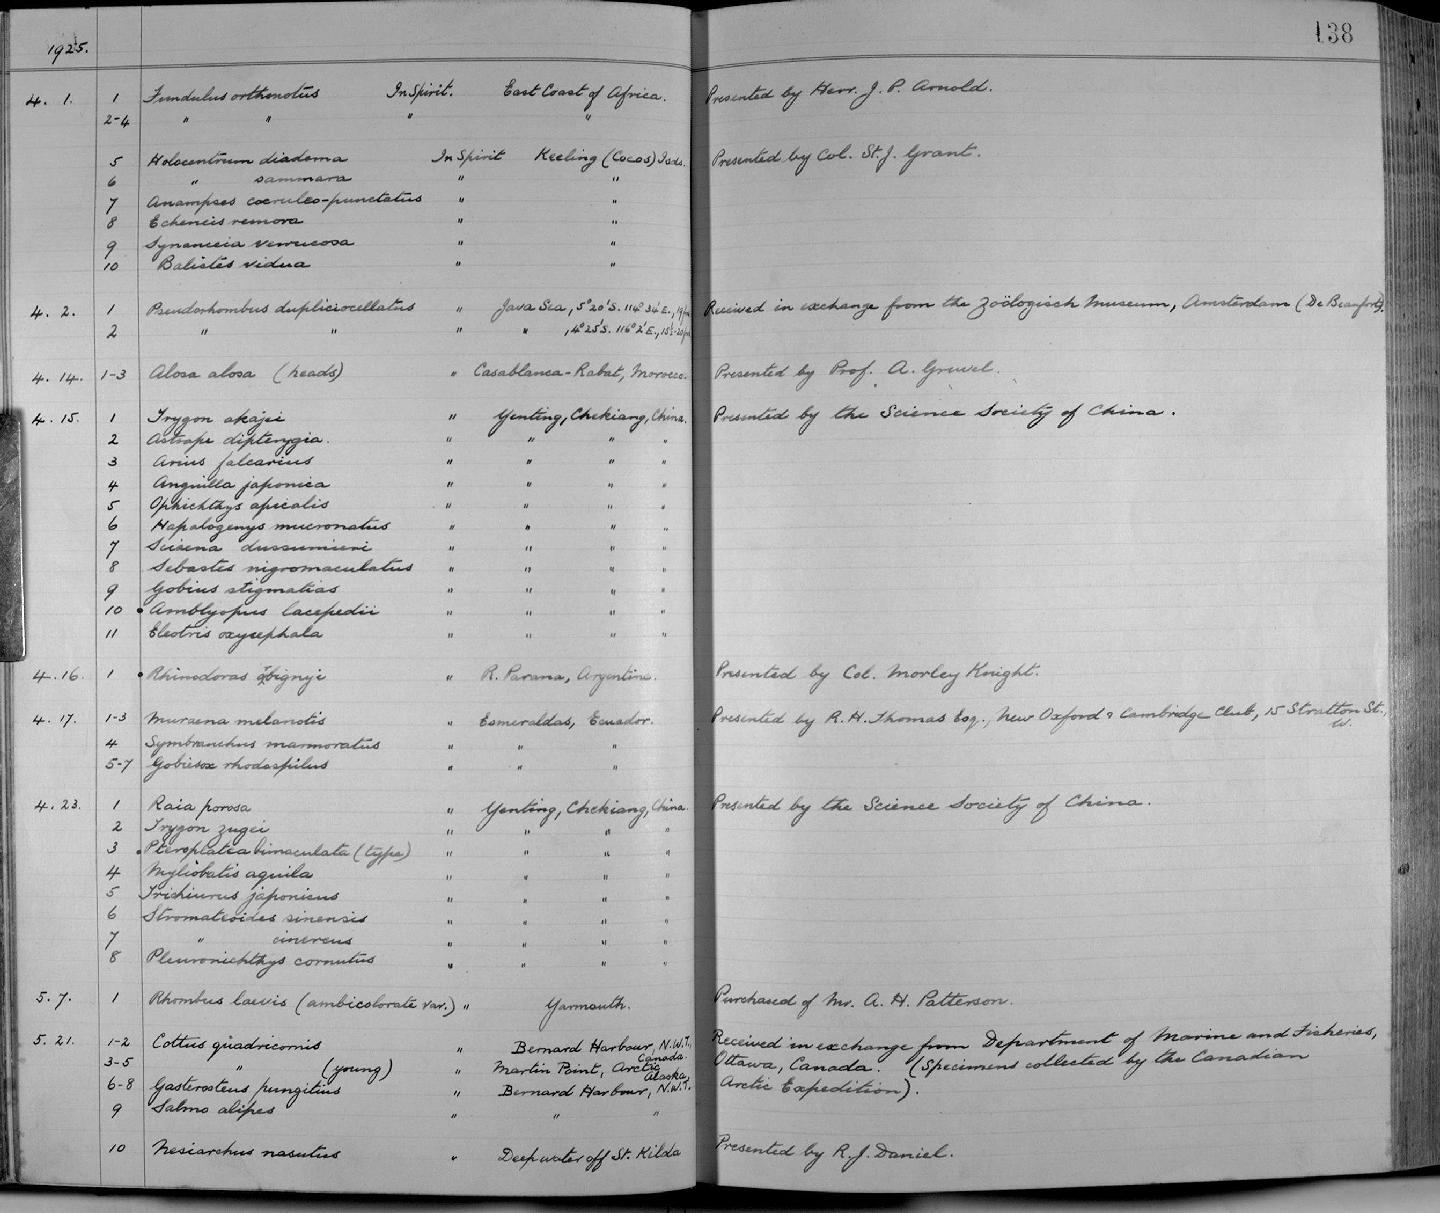 1925.
138
4. 1. 1 Fundulus orthonotus In Spirit. East Coast of Africa. Presented by Herr. J. P. Arnold.
2-4 " " " "
5 Holocentrum diadema In Spirit Keeling (Cocos) Isds. Presented by Col. St. J. Grant.
6 " sammara " "
7 Anampses coeruleo-punctatus " "
8 Echeneis remora " "
9 Synanceia verrucosa " "
10 Balistes vidua " "
4. 2. 1 Pseudorhombus dupliciocellatus " Java Sea, 5°20'S. 114° 34'E., Received in exchange from the Zoölogisch Museum, Amsterdam (De Beaufort).
2 " " " " , 4°25'S. 116°2'E.,
4. 14. 1-3 Alosa alosa (heads) " Casablanca-Rabat, Morocco. Presented by Prof. A. Gruvel.
4. 15. 1 Trygon akajei " Yenting, Chekiang, China. Presented by the Science Society of China.
2 Astrape dipterygia. " " " "
3 Arius falcarius " " " "
4 Anguilla japonica " " " "
5 Ophichthys apicalis " " " "
6 Hapalogenys mucronatus " " " "
7 Sciaena dussumieri " " " "
8 Sebastes nigromaculatus " " " "
9 Gobius stigmatias " " " "
10 Amblyopus lacepedii " " " "
11 Eleotris oxycephala " " " "
4. 16. 1 Rhinodoras d'orbignyi " R. Parana, Argentine. Presented by Col. Morley Knight.
4. 17. 1-3 Muraena melanotis " Esmeraldas, Ecuador. Presented by R. H. Thomas Esq., New Oxford & Cambridge Club, 15 Stratton St., W.
4 Symbranchus marmoratus " " "
5-7 Gobiesox rhodospilus " " "
4. 23. 1 Raia porosa " Yenting, Chekiang, China. Presented by the Science Society of China.
2 Trygon zugei " " " "
3 Pteroplatea bimaculata (type) " " " "
4 Myliobatis aquila " " " "
5 Trichiurus japonicus " " " "
6 Stromateoides sinensis " " " "
7 " cinereus " " " "
8 Pleuronichthys cornutus " " " "
5. 7. 1 Rhombus laevis (ambicolorate var.) " Yarmouth. Purchased of Mr. A. H. Patterson.
5. 21. 1-2 Cottus quadricornis " Bernard Harbour, N.W.T., Canada. Received in exchange from Department of Marine and Fisheries,
3-5 " (young) " Martin Point, Arctic Alaska Ottawa, Canada. (Specimens collected by the Canadian
6-8 Gasterosteus pungitius " Bernard Harbour, N.W.T. Arctic Expedition).
9 Salmo alipes " " "
10 Nesiarchus nasutus " Deep water off St. Kilda Presented by R. J. Daniel.